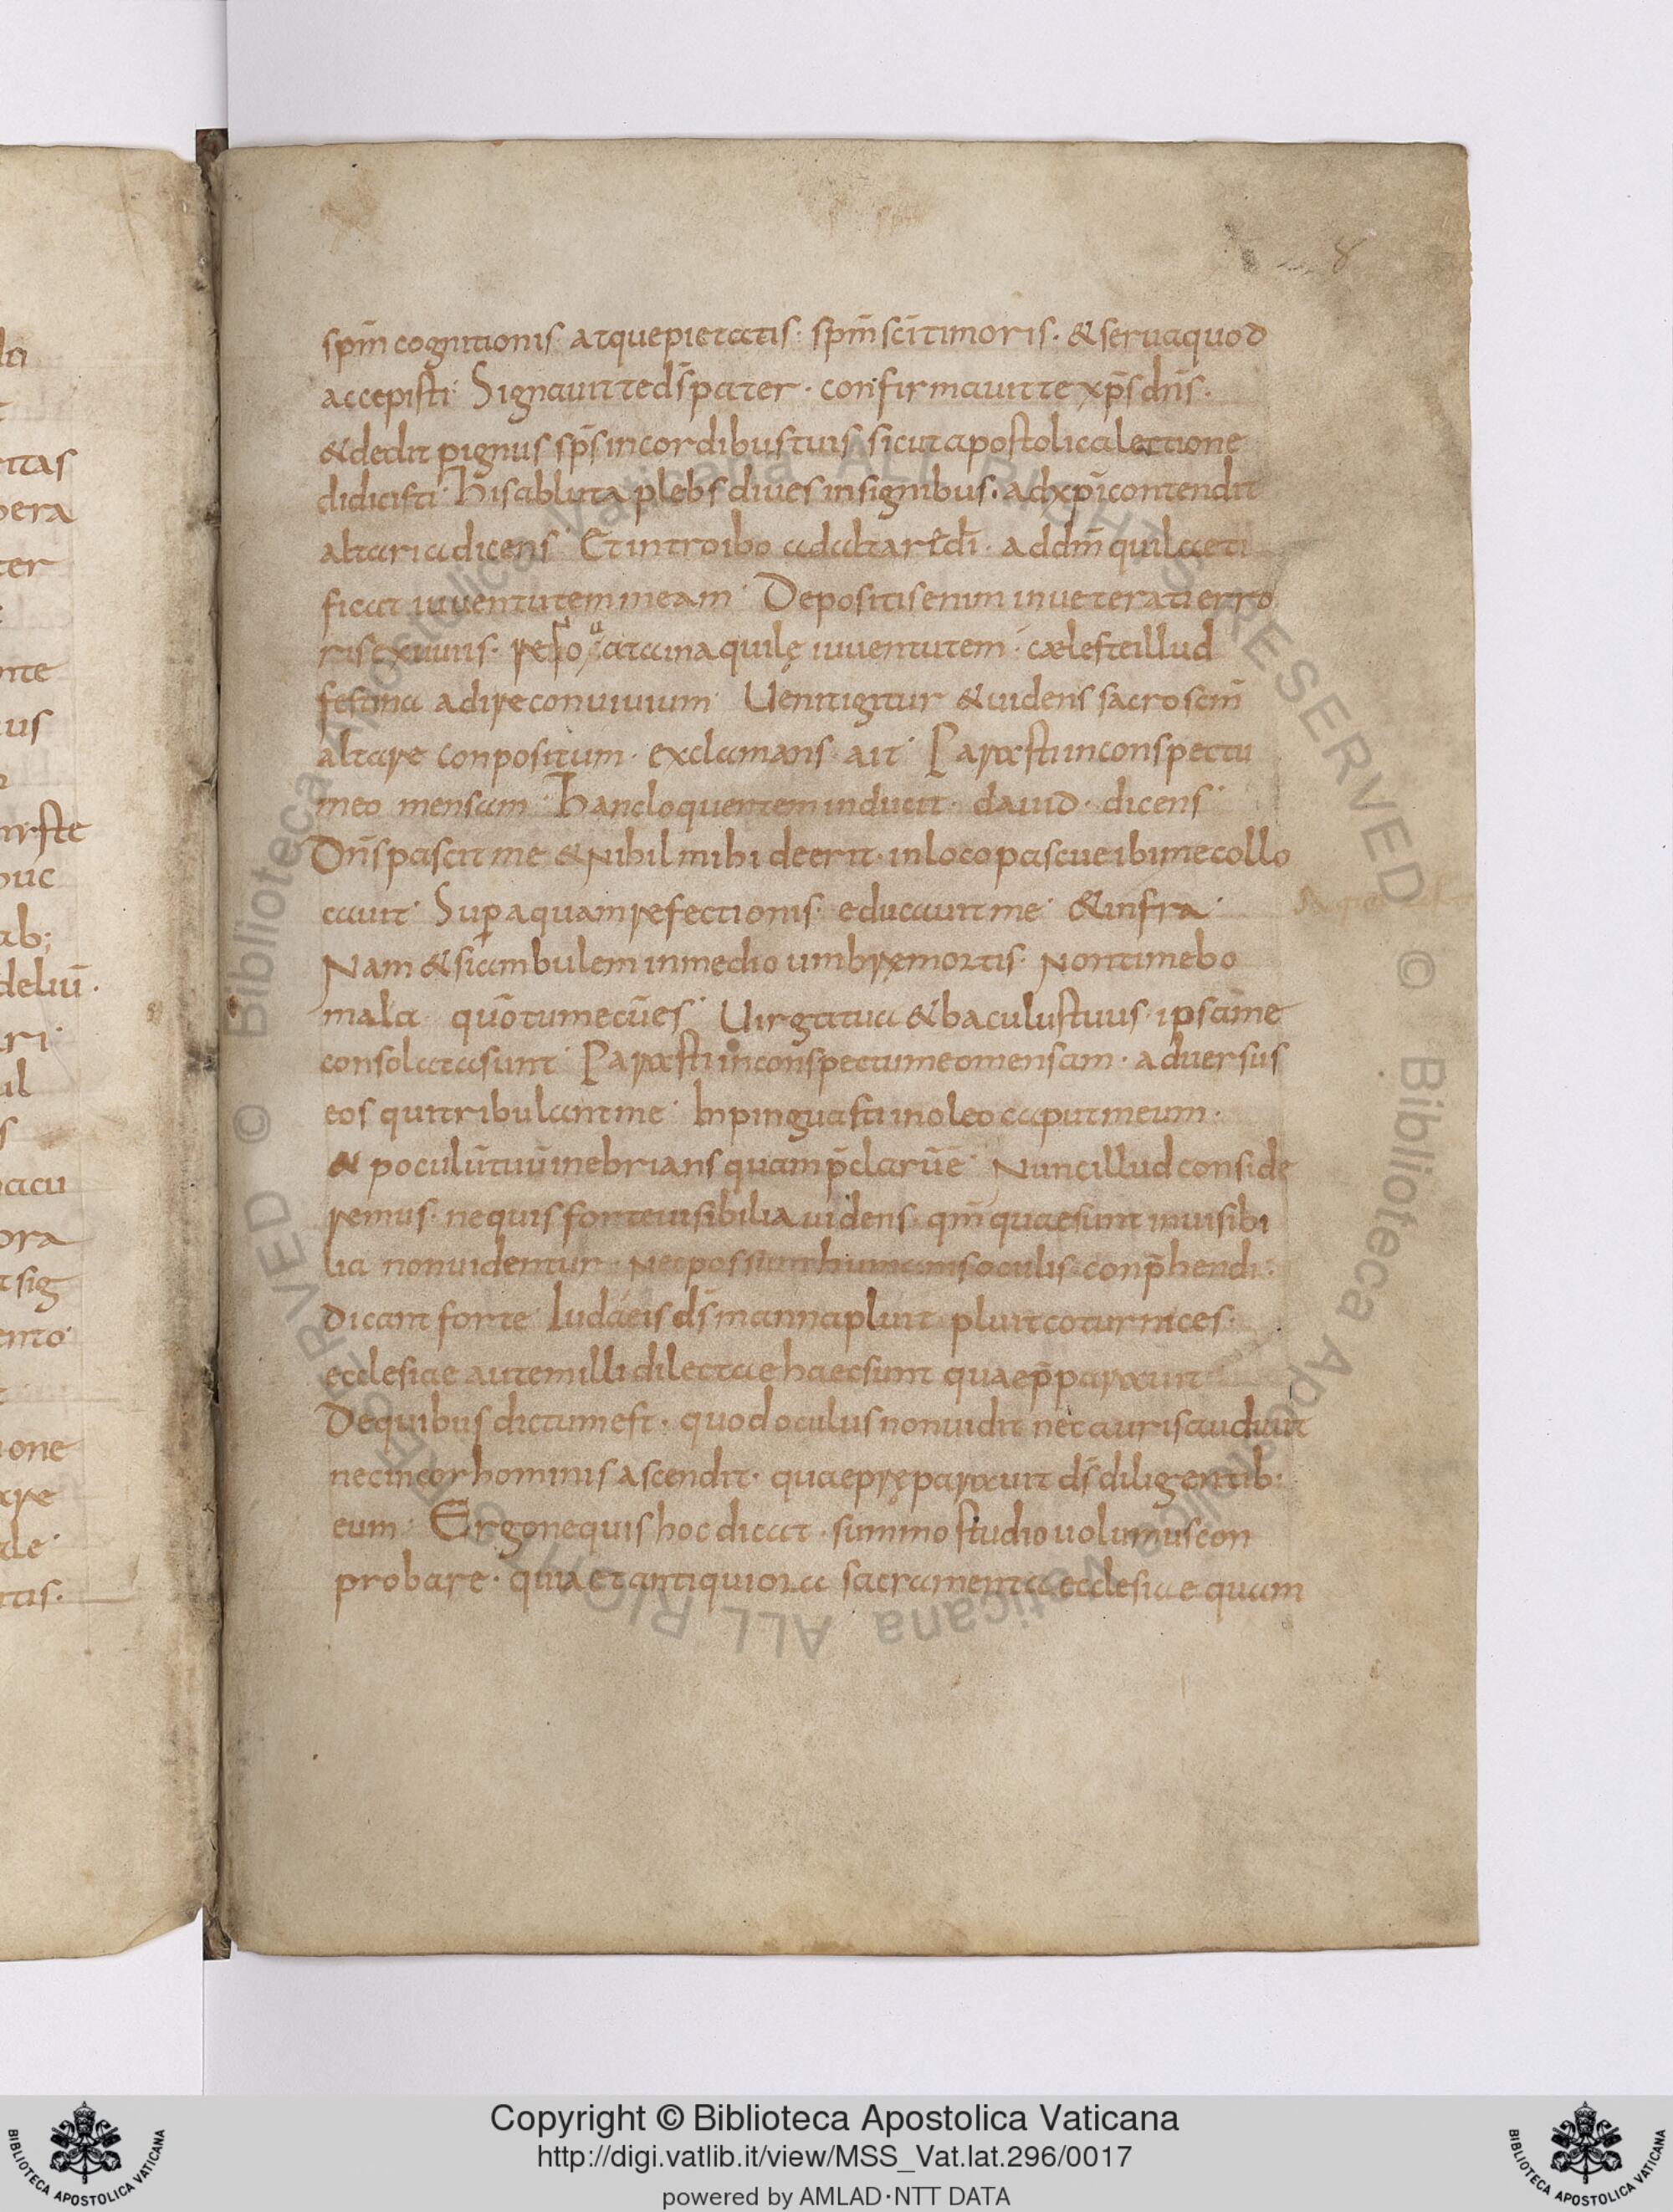 8
sp̄m cognitionis· atque pietatis· sp̄m sc̄i timoris· & serua quod
accepisti· Signauit te d̄s pater· confirmauit te xp̄s dn̄s·
& dedit pignus sp̄s in cordibus tuis· sicut apostolica lectione
didicisti· His abluta plebs diues insignibus· ad xp̄i contendit
altaria dicens· Et introibo ad altare dī· ad dm̄ qui laeti
ficat iuuentutem meam· Depositis enim inueterati erro
ris exuuiis· aquilę iuuentutem· caeleste illud
festina adire conuiuium· Uenit igitur & uidens sacro sc̄m
altare conpositum· exclamans· ait· Parasti in conspectu
meo mensam· Hanc loquentem inducit· dauid· dicens·
Dn̄s pascit me & nihil mihi deerit· in loco pascue ibi me collo
cauit· Super aquam refectionis· educauit me· & infra·
Nam & si ambulem in medio umbrę mortis· Non timebo
mala· quō tu mecū es· Uirga tua & baculus tuus· ipsa me
consolata sunt· Parasti in conspectu meo mensam· aduersus
eos qui tribulant me· Inpinguasti in oleo caput meum·
& poculū tuū inebrians quam p̄clarū ē· Nunc illud conside
remus· ne quis forte uisibilia uidens· qm̄ quae sunt inuisibi
lia non uidentur· Nec possunt humanis oculis conp̄hendi·
Dicat forte Iudaeis d̄s manna pluit pluit coturnices·
ecclesiae autem illi dilectae haec sunt quae p̄parauit
De quibus dictum est· quod oculus non uidit nec auris audiuit
nec in cor hominis ascendit· quae pręparauit d̄s diligentib·
eum· Ergo ne quis hoc dicat· summo studio uolumus con
probare· quia et antiquiora sacramenta ecclesiae quam
Copyright © Biblioteca Apostolica Vaticana
http://digi.vatlib.it/view/MSS_Vat.lat.296/0017
powered by AMLAD·NTT DATA